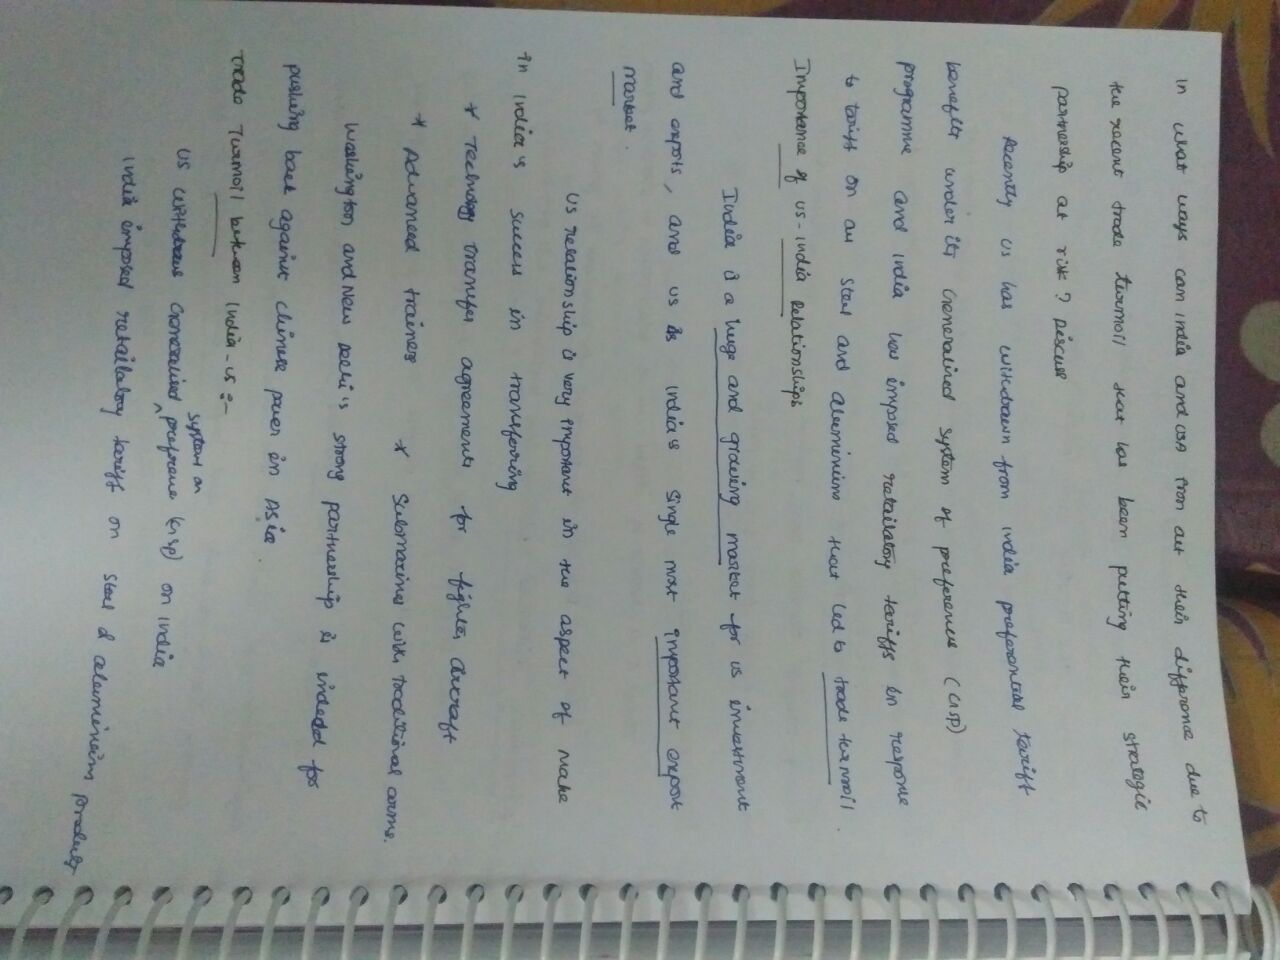 In what ways can India and USA iron out their difference due to
the recent trade turmoil that has been putting their strategic
partnership at risk? Discuss
Recently US has withdrawn from India preferential tariff
benefits under its Generalized system of preferences (GSP)
programme and India has imposed retaliatory tariffs in response
to tariff on an steel and aluminium that led to trade turmoil.
Importance of US-India Relationships
India is a huge and growing market for US investment
and exports, and US is India's single most important export
market.
US relationship is very important in the aspect of make
in India is success in transferring
* Technology transfer agreements for fighter aircraft
* Advanced trainers * Submarines with traditional arms.
Washington and New Delhi's strong partnership is indeed for
pushing back against chinese power in Asia.
Trade Turmoil between India-US :-
US withdraws Generalised system on preference (GSP) on India
India imposed retaliatory tariff on steel & aluminium products